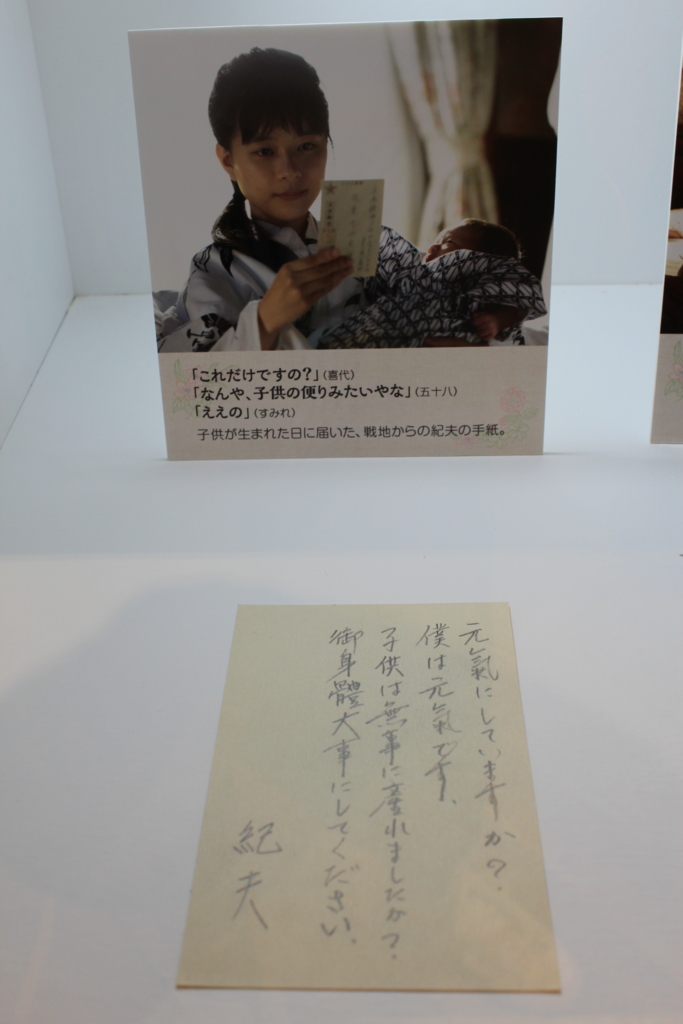 「これだけですの?」(喜代)
「なんや、子供の便りみたいやな」(五十八)
「ええの」(すみれ)
子供が生まれた日に届いた、戦地からの紀夫の手紙。
元氣にしていますか?
僕は元氣です。
子供は無事に産れましたか?
御身體大事にしてください。
紀夫